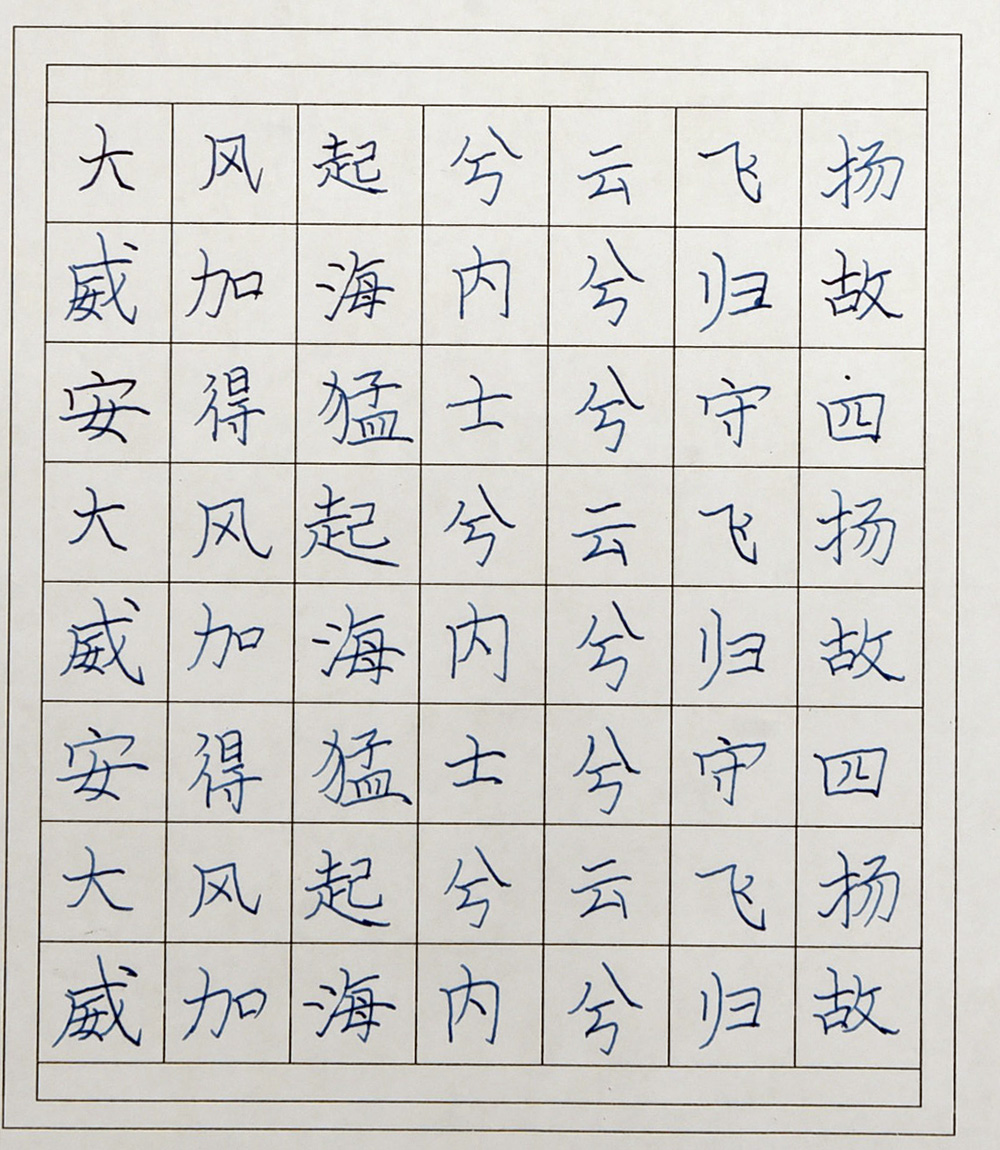 大风起兮云飞扬
威加海内兮归故
安得猛士兮守四
大风起兮云飞扬
威加海内兮归故
安得猛士兮守四
大风起兮云飞扬
威加海内兮归故